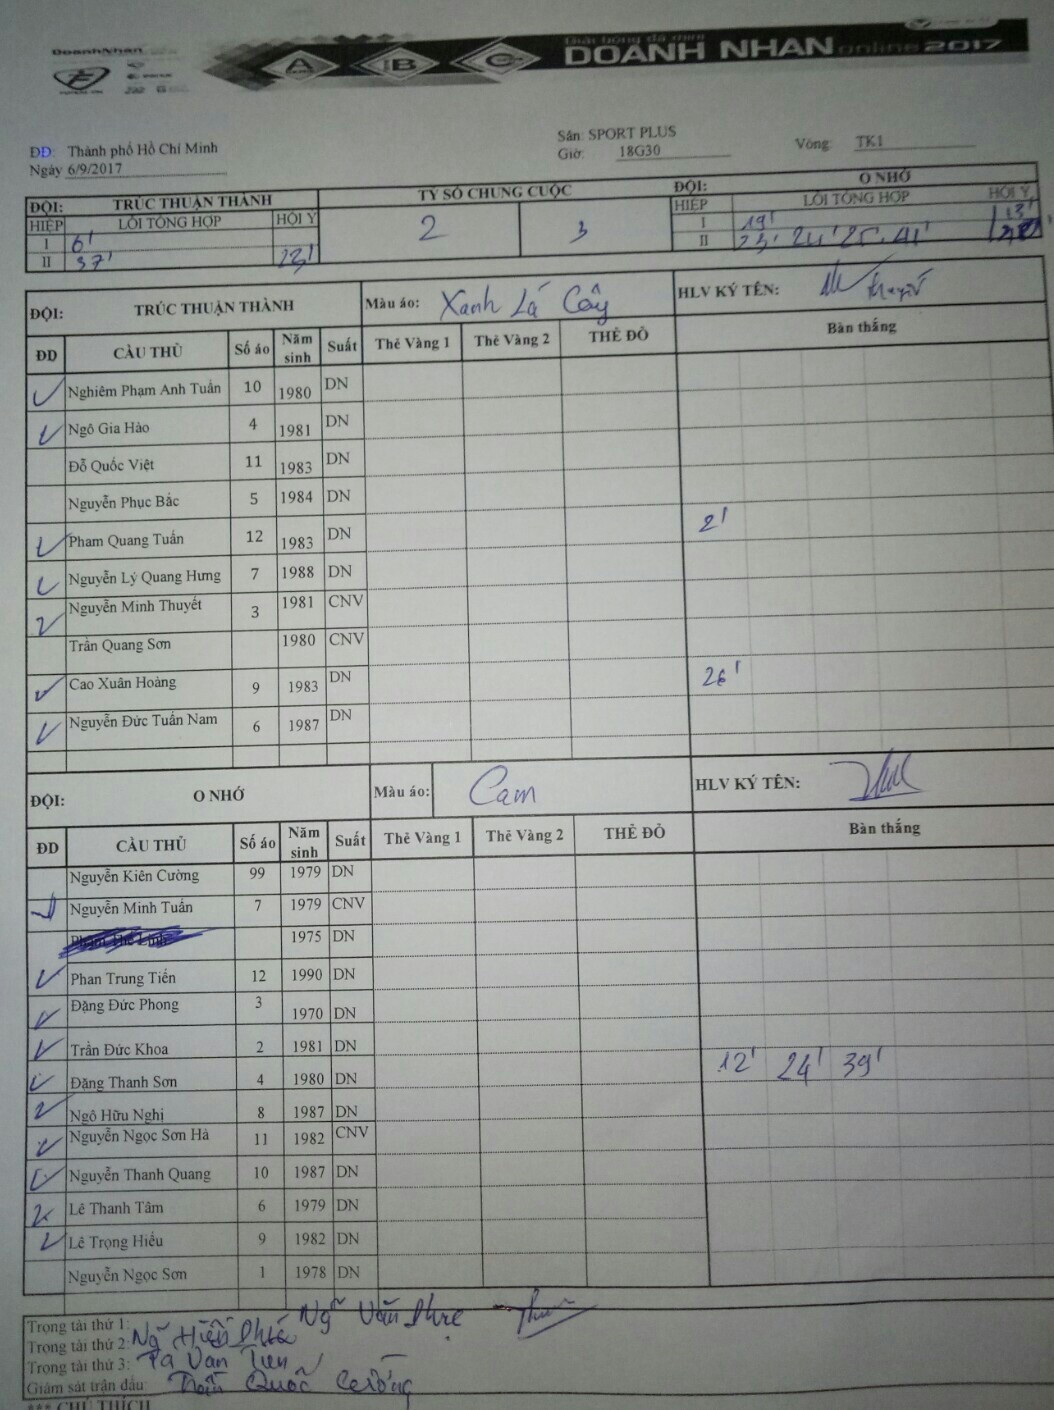 DoanhNhan
A B C
Giải bóng đá mini
DOANH NHAN online 2017
ĐĐ: Thành phố Hồ Chí Minh Sân: SPORT PLUS Vòng: TK1
Ngày 6/9/2017 Giờ: 18G30
ĐỘI: TRÚC THUẬN THÀNH TỶ SỐ CHUNG CUỘC ĐỘI: O NHỚ
HIỆP LỖI TỔNG HỢP HỘI Ý 2 3 HIỆP LỖI TỔNG HỢP HỘI Ý
I 6' I 19' 13'
II 37' 23' II 23' 24' 25' 41'
ĐỘI: TRÚC THUẬN THÀNH Màu áo: Xanh Lá Cây HLV KÝ TÊN:
ĐD CẦU THỦ Số áo Năm sinh Suất Thẻ Vàng 1 Thẻ Vàng 2 THẺ ĐỎ Bàn thắng
Nghiêm Phạm Anh Tuấn 10 1980 DN
Ngô Gia Hảo 4 1981 DN
Đỗ Quốc Việt 11 1983 DN
Nguyễn Phục Bắc 5 1984 DN
Pham Quang Tuấn 12 1983 DN 2'
Nguyễn Lý Quang Hưng 7 1988 DN
Nguyễn Minh Thuyết 3 1981 CNV
Trần Quang Sơn 1980 CNV
Cao Xuân Hoàng 9 1983 DN 26'
Nguyễn Đức Tuấn Nam 6 1987 DN
ĐỘI: O NHỚ Màu áo: Cam HLV KÝ TÊN:
ĐD CẦU THỦ Số áo Năm sinh Suất Thẻ Vàng 1 Thẻ Vàng 2 THẺ ĐỎ Bàn thắng
Nguyễn Kiên Cường 99 1979 DN
Nguyễn Minh Tuấn 7 1979 CNV
1975 DN
Phan Trung Tiến 12 1990 DN
Đặng Đức Phong 3 1970 DN
Trần Đức Khoa 2 1981 DN
Đặng Thanh Sơn 4 1980 DN 12' 24' 39'
Ngô Hữu Nghị 8 1987 DN
Nguyễn Ngọc Sơn Hà 11 1982 CNV
Nguyễn Thanh Quang 10 1987 DN
Lê Thanh Tâm 6 1979 DN
Lê Trọng Hiếu 9 1982 DN
Nguyễn Ngọc Sơn 1 1978 DN
Trọng tài thứ 1: Ng Văn
Trọng tài thứ 2: Ng Hiền
Trọng tài thứ 3: Tạ Van Tien
Giám sát trận đấu: Trần Quốc Cường
*** CHÚ THÍCH